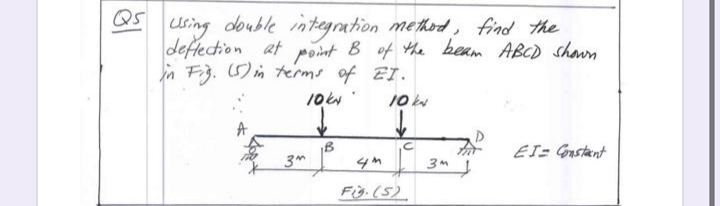 Q5 Using double integration method, find the
deflection at point B of the beam ABCD shown
in Fig. (5) in terms of EI.
10kN 10kN
A B C D
EI = Constant
3m 4m 3m
Fig. (5)